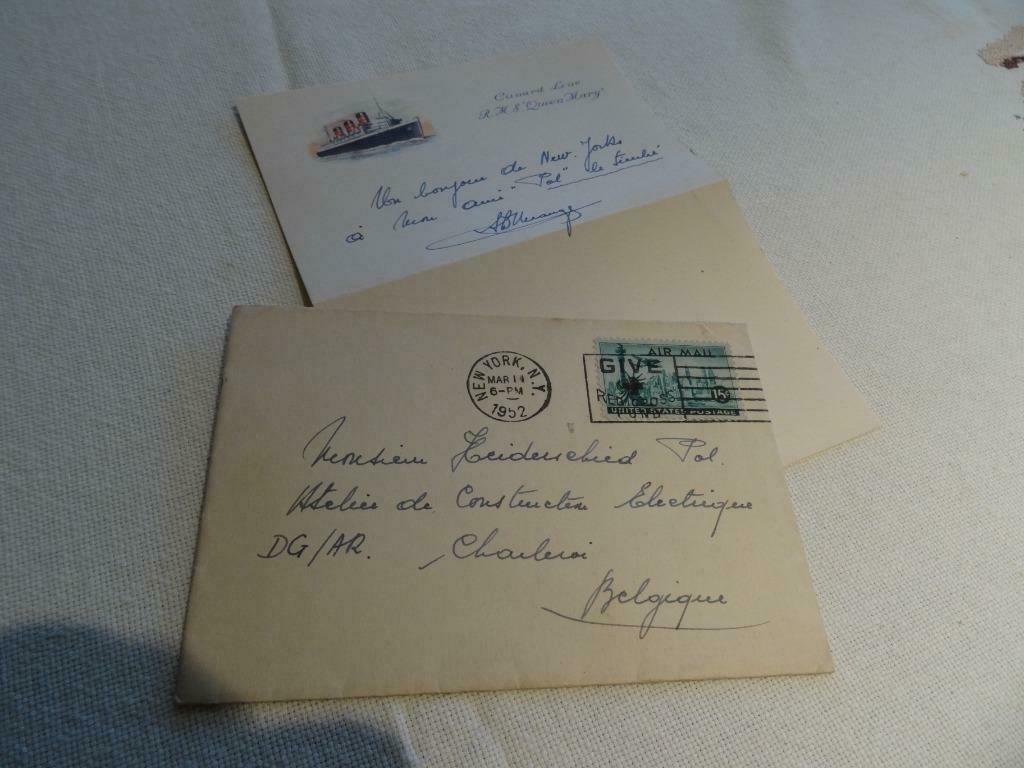 Cunard Line
R.M.S. "Queen Mary"
Un bonjour de New-York
à mon ami "Pol" le
NEW YORK, N.Y.
MAR 14
6-PM
1952
AIR MAIL
GIVE
15¢
UNITED STATES POSTAGE
FUND
Monsieur Heiderscheid Pol.
Atelier de Construction Electrique
DG/AR. Charleroi
Belgique